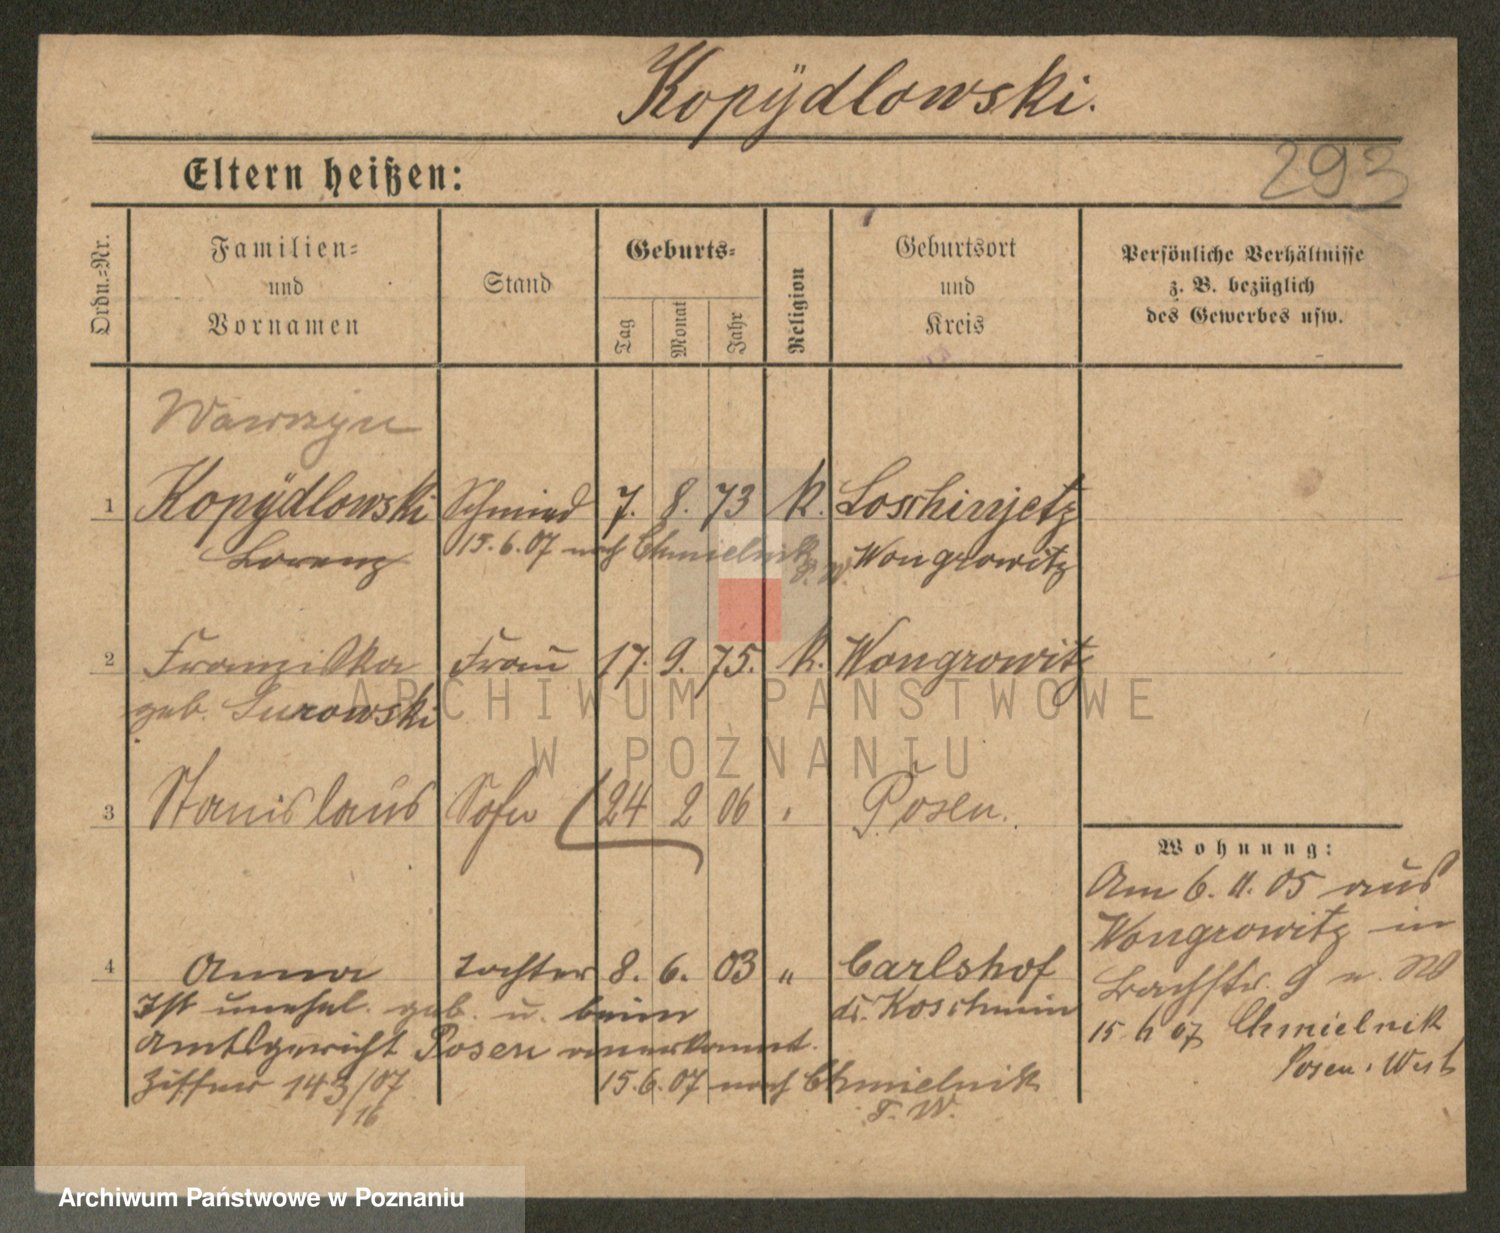 Kopÿdlowski.
293
Eltern heißen:
Ordn.-Nr.
Familien- und Vornamen
Stand
Geburts-
Tag
Monat
Jahr
Religion
Geburtsort und Kreis
Persönliche Verhältnisse
z. B. bezüglich
des Gewerbes usw.
Wawrzyn
1 Kopÿdlowski Schmied 7. 8. 73 k.
Lorenz 15.6.07 nach Chmielnik P. W. Wongrowitz
2 Franziska Frau 17. 9. 75. k. Wongrowitz
geb. Gurowski
3 Stanislaus Sohn 24 2 06 " Posen.
Wohnung:
Am 6. 11. 05 aus
Wongrowitz in
Bachstr. 9 u. W
15 6 07 Chmielnik
Posen. West
4 Anna Tochter 8. 6. 03 " Carlshof
Ist unehel. geb. u. beim Koschmin
Amtsgericht Posen anerkannt.
Ziffer 143/07 15.6.07 nach Chmielnik
16 P. W.
ARCHIWUM PAŃSTWOWE
W POZNANIU
Archiwum Państwowe w Poznaniu